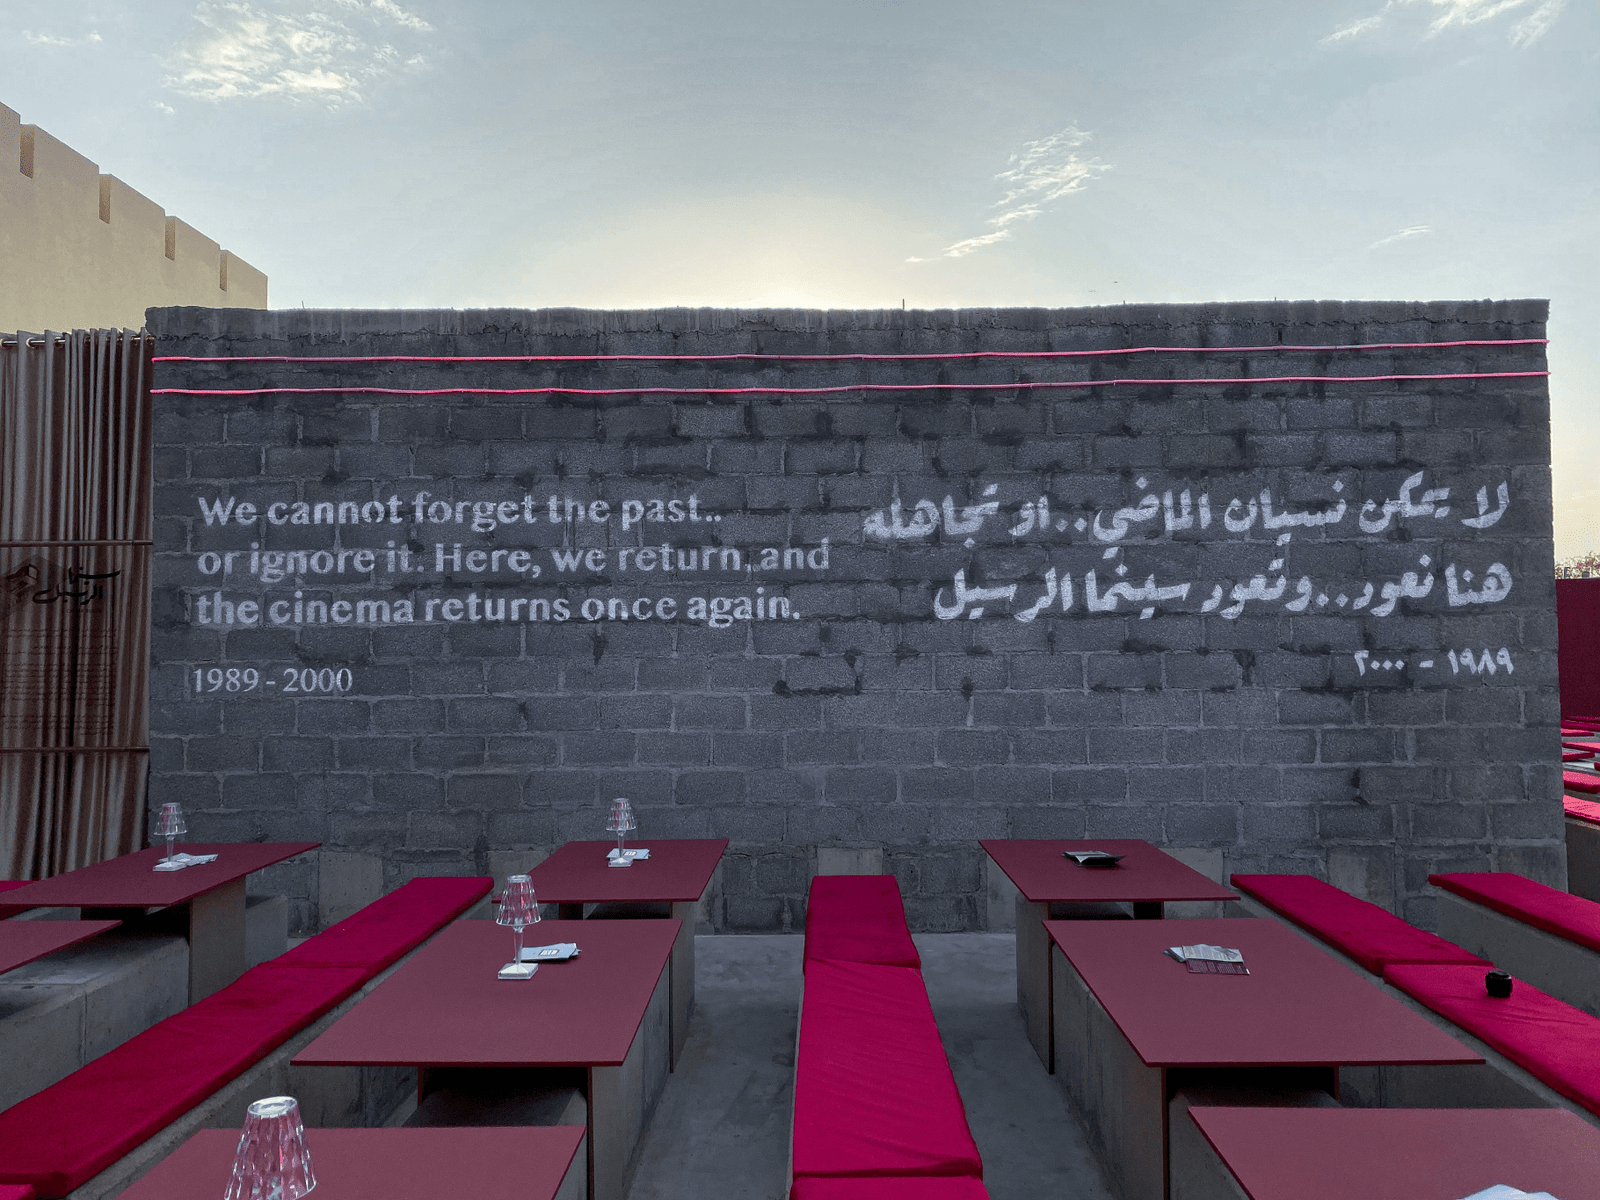 We cannot forget the past..
or ignore it. Here, we return..and
the cinema returns once again.
1989 - 2000
لا يمكن نسيان الماضي..او تجاهله
هنا نعود..وتعود سينما الرسيل
١٩٨٩ - ٢٠٠٠
سينما
الرسيل